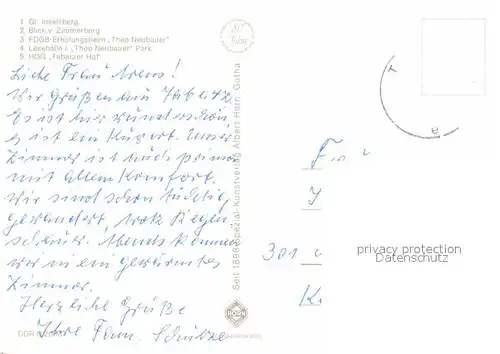 1 Gr. Inselsberg
2. Blick v. Zimmerberg
3 FDGB-Erholungsheim „Theo Neubauer"
4 Lesehalle i. „Theo Neubauer" Park
5 HOG „Tabarzer Hof"
Liebe Frau Arens!
Wir grüßen aus Tabarz
Es ist hier wunderschön
es ist ein Kurort. Unser
Zimmer ist auch prima
mit allem Komfort.
Wir sind schon tüchtig
gewandert, trotz Regen
schauer. Abends können
wir in ein gewärmtes
Zimmer.
Herzliche Grüße
Ihre Fam. Schulze
Seit 1896 Spezial-Kunstverlag Albert Horn, Gotha
DDR
301
privacy protection
Datenschutz